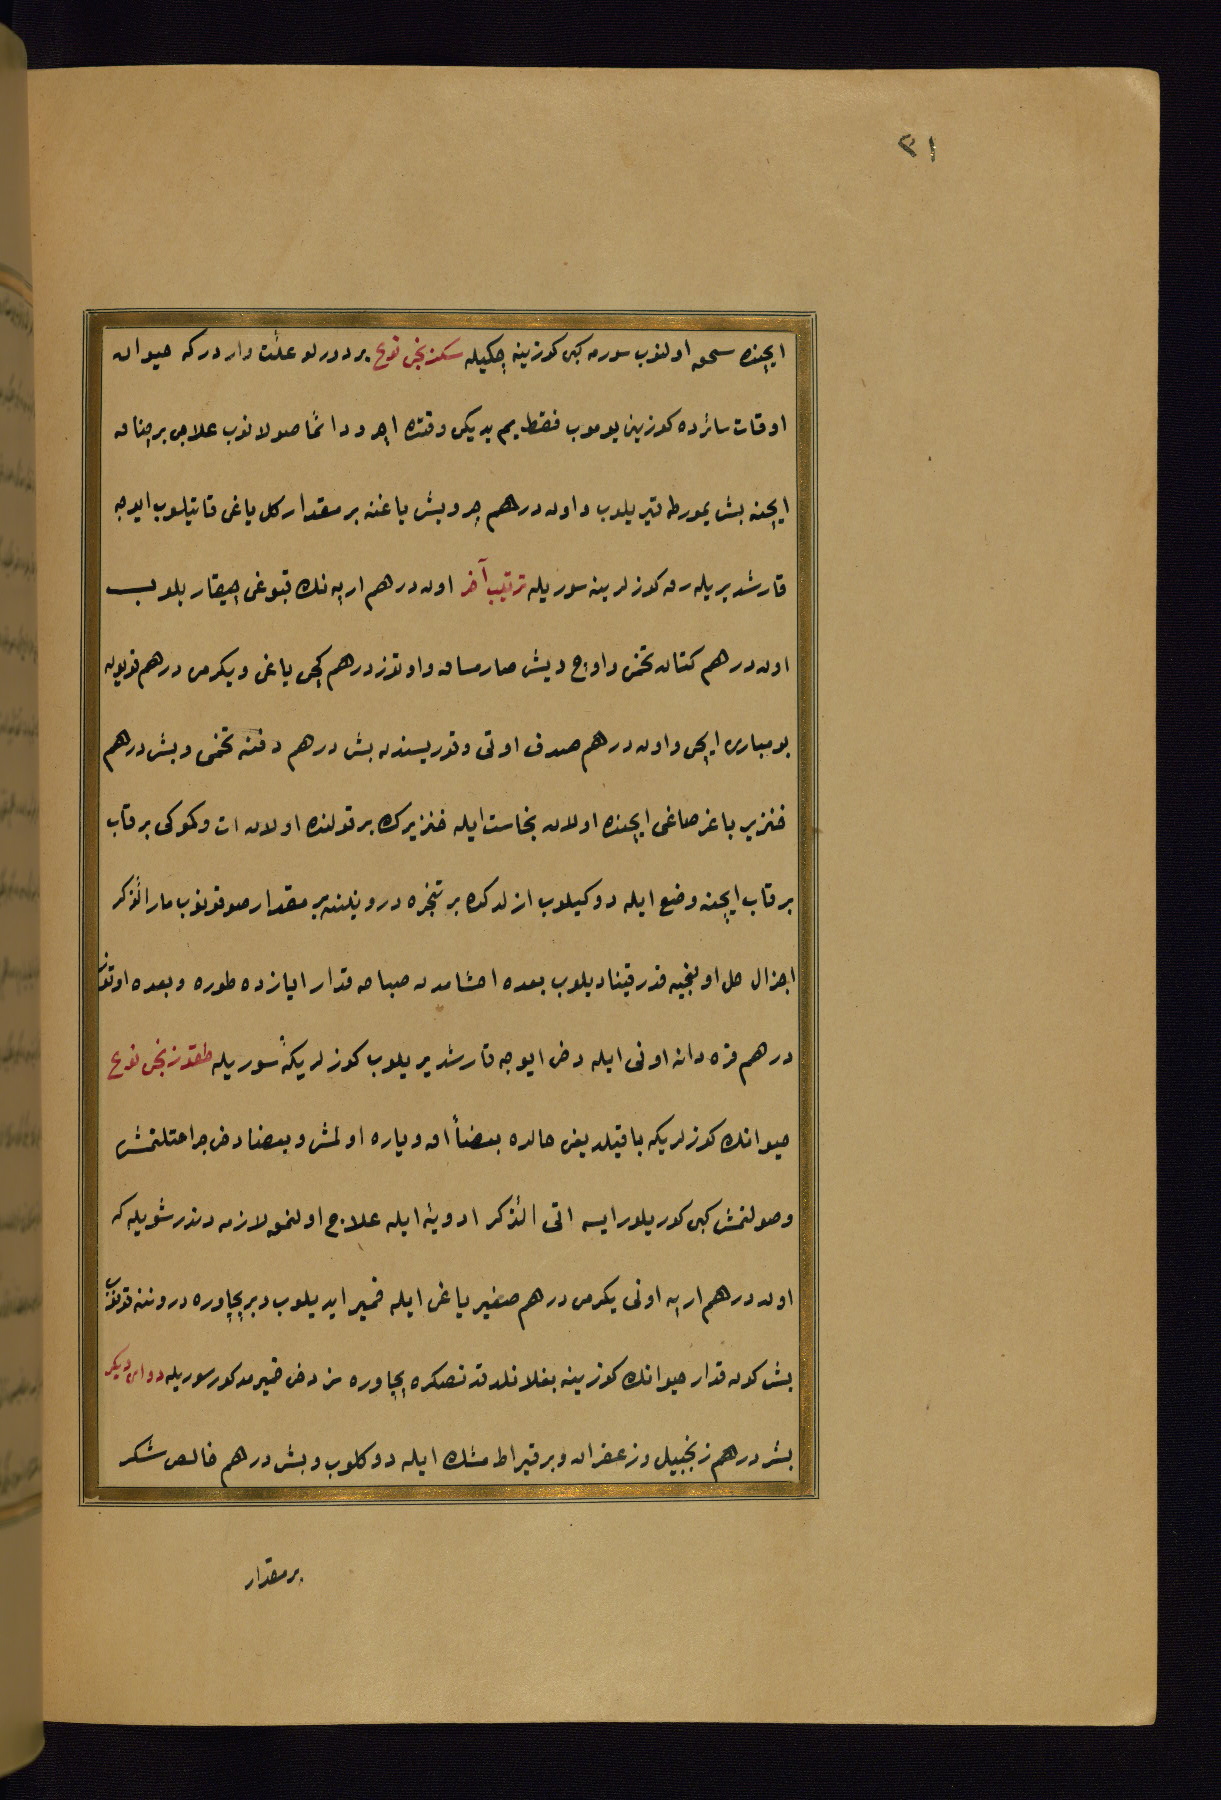 ٣١
ایچنده سحق اولنوب سورمه کبی کوزینه چکیله سکزنجی نوع بر درلو علت واردرکه حیوان
اوقات سائرده کوزین یوموب فقط یم یدیکی وقتده اچر و دائما صولانوب علاجی بر چناق
ایچنه بش یمورطه قیریلوب و اون درهم چرویش یاغنه بر مقدار کل یاغی قاتیلوب ایوجه
قارشدیریله رق کوزلرینه سوریله ترتیب آخر اون درهم ارپه نك قبوغی چیقاریلوب
اون درهم کتان تخمی و اوچ دیش صارمساق و اوتوز درهم کچی یاغی و یکرمی درهم قویون
بومباری ایچی و اون درهم صدف اوتی و قوریسندن بش درهم دفنه تخمی و بش درهم
خنزیر باغرصاغی ایچنده اولان نجاست ایله خنزیرك بر قولنده اولان ات و کموکی بر قاب
بر قاب ایچنه وضع ایله دوکیلوب ازلدکده بر تنجره دروننه بر مقدار صو قونوب مار الذکر
اجزال حل اولنجیه قدر قینادیلوب بعده اخشامدن صباحه قدار ایازده طوره و بعده اوتوز
درهم قره دانه اونی ایله دخی ایوجه قارشدیریلوب کوزلریکه سوریله طقوزنجی نوع
حیوانك کوزلریکه باقیلدیغی حالده بعضاً اق و یاره اولمش و بعضا دخی جراحتلنمش
و صولنمش کبی کوریلور ایسه اتی الذکر ادویه ایله علاج اولنمق لازمه دندر شویله که
اون درهم ارپه اونی یکرمی درهم صغیر یاغی ایله خمیر ایدیلوب و بر پچاوره دروننه قونوب
بش کون قدار حیوانك کوزینه بغلاندقدنصکره پچاوره سز دخی خمیر مذکور سوریله دوای دیکر
بش درهم زنجبیل و زعفران و بر قیراط مشك ایله دوکلوب و بش درهم خالص شکر
بر مقدار